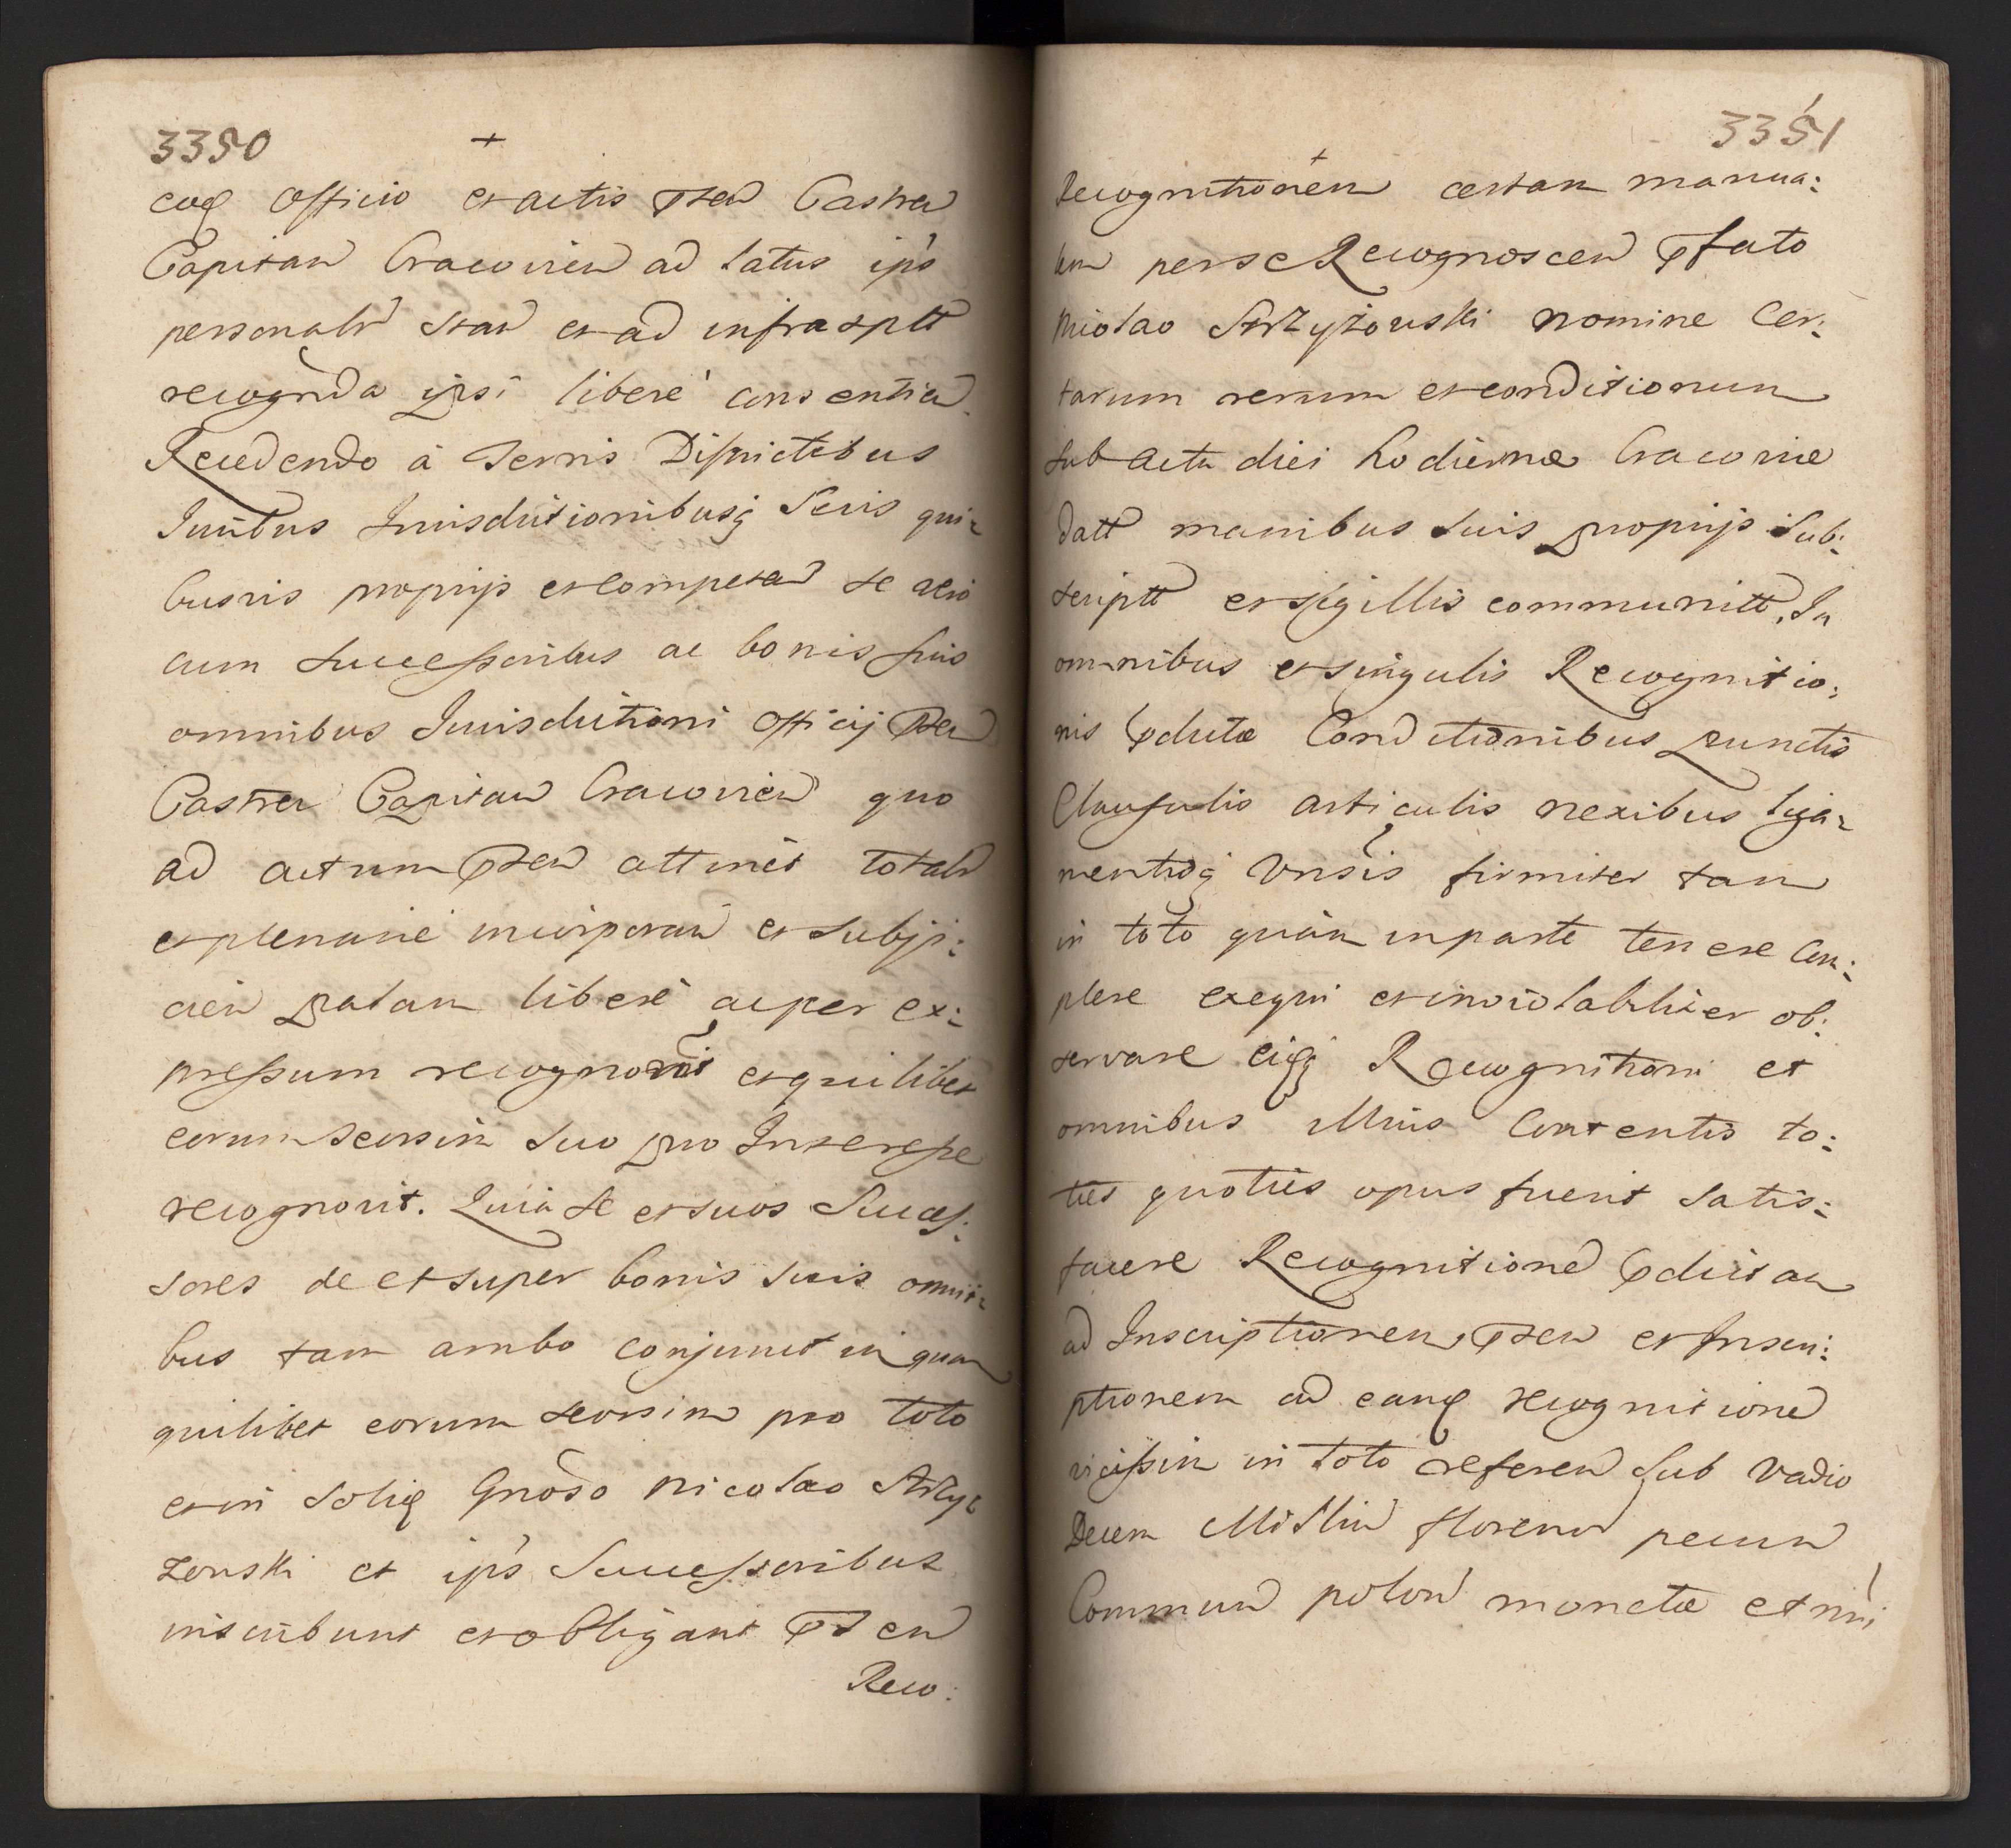 3350
+
coq Officio et actis pten Castren
Capitan Cracovien ad latus ips
personalr stan et ad infrasptt
recognda ipsi libere consentien
Recedendo à Terris Districtibus
Juribus Jurisdictionibusq suis qui-
busvis proprijs et competen se ae
cum successoribus ac bonis suis
omnibus Jurisdictioni Officij pten
Castren Capitan Cracovien quo
ad actum pten attinet totalr
et plenarie incorporan et subji:
cien palam libere ac per ex:
pressum recognovit et quilibet
eorum seorsim suo pro Interesse
recognovit. Quia se et suos Succes:
sores de et super bonis suis omni-
bus tam ambo conjunctim quam
quilibet eorum seorsim pro toto
et in solid Gnoso Nicolao Strzy-
zouski et ips Successoribus
inscribunt et obligant pten
Reco:
3351
+
Recognitionem certam manua:
lem per se Recognoscen pfato
Nicolao Strzyżouski nomine Cer:
tarum rerum et conditionum
sub actu diei hodiernæ Cracoviæ
datt manibus suis proprijs sub:
scriptt et sigillis communitt, In
omnibus et singulis Recognitio:
nis pdictæ Conditionibus punctis
Clausulis articulis nexibus liga-
mentisq Vnsis firmiter tam
in toto quàm in parte tenere Com:
plere exequi et inviolabiliter ob:
servare eiq Recognitioni et
omnibus illius Contentis to:
ties quoties opus fuerit satis:
facere Recognitione pdictam
ad Inscriptionem pten et Inscri:
ptionem ad eand recognitione
vicissim in toto referen sub Vadio
Decem Millium florenor pecun
Commun polon monetæ et nri